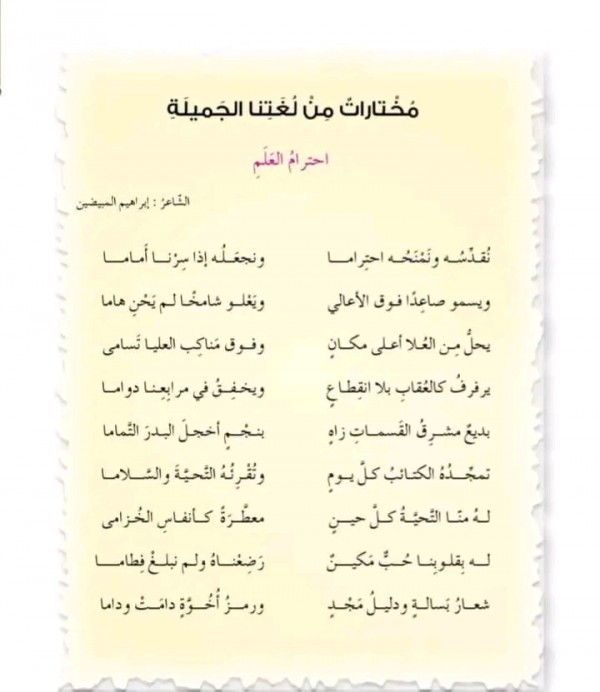 مُخْتاراتٌ مِنْ لُغَتِنا الجَميلَةِ
احترامُ العَلَمِ
الشّاعرُ : إبراهيم المبيضين
نُقدِّسُـه ونَمْنَحُـه احتِرامـا ونجعَلُـه إذا سِرْنـا أَمامـا
ويسمو صاعِدًا فوق الأعالي ويَعْلـو شامخًـا لـم يَحْنِ هاما
يحلُّ مِـن العُلا أعلى مكـانٍ وفـوق مَناكِبِ العليـا تَسامى
يرفرفُ كالعُقابِ بـلا انقِطـاعٍ ويخفِـقُ في مرابِعِنـا دوامـا
بديعٌ مشرِقُ القَسمـاتِ زاهٍ بنجْـمٍ أخجـلَ البـدرَ التَّماما
تمجِّـدُهُ الكتائبُ كـلَّ يـومٍ وتُقْرِئُهُ التَّحيَّةَ والسَّـلامـا
لـهُ منّـا التَّحيَّـةُ كـلَّ حيـنٍ معطَّـرَةً كـأنفـاسِ الخُـزامى
لـه بِقلوبِنـا حُـبٌّ مَكيـنٌ رَضِعْنـاهُ ولـم نبلـغْ فِطامـا
شعـارُ بَسالـةٍ ودليـلُ مَجْـدٍ ورمـزُ أُخُـوَّةٍ دامَـتْ وداما